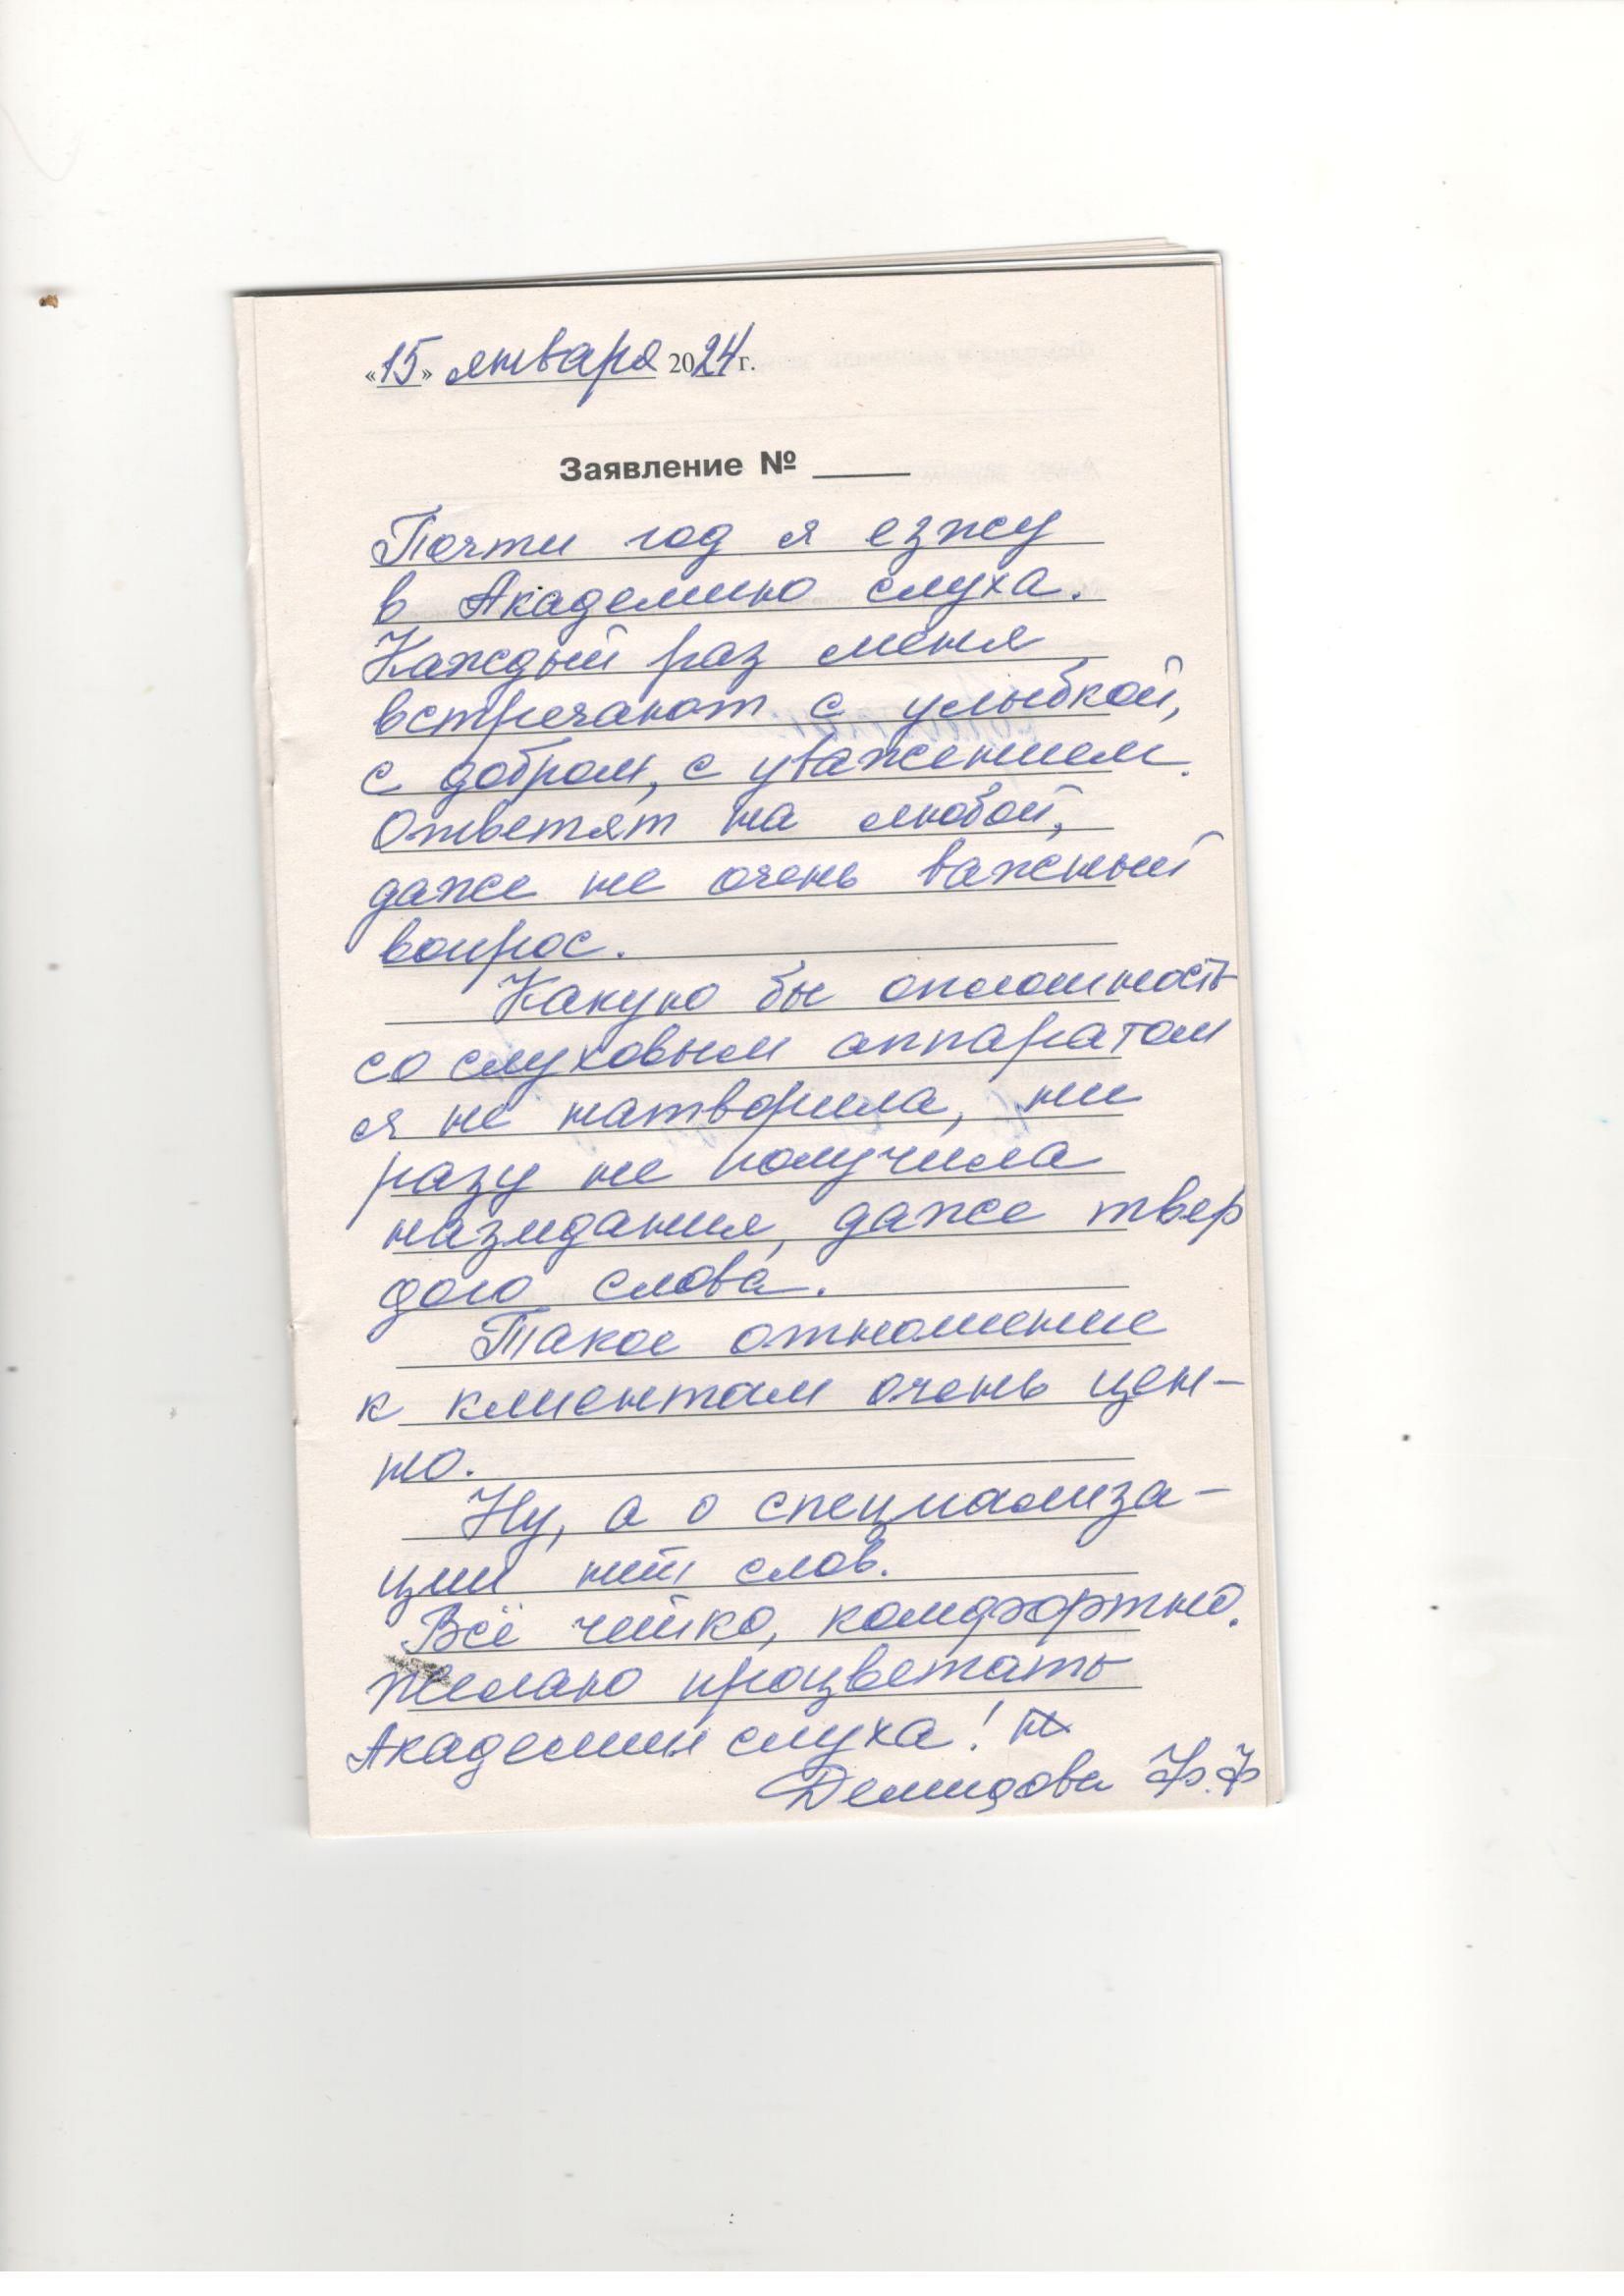 «15» января 2024 г.
Заявление № ____
Почти год я езжу
в Академию слуха.
Каждый раз меня
встречают с улыбкой,
с добром, с уважением.
Ответят на любой,
даже не очень важный
вопрос.
Какую бы оплошность
со слуховым аппаратом
я не натворила, ни
разу не получила
назидания, даже твер
дого слова.
Такое отношение
к клиентам очень цен-
но.
Ну, а о специализа-
ции нет слов.
Всё чётко, комфортно.
Желаю процветать
Академии слуха!
Демидова